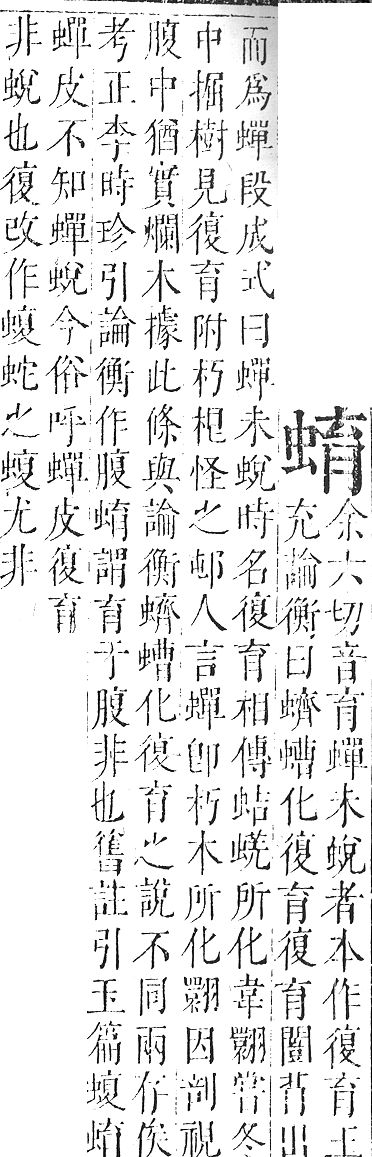 蜟
余六切音育蟬未蛻者本作復育王
充論衡曰蠐螬化復育復育闓背出
而爲蟬段成式曰蟬未蛻時名復育相傳蛣蜣所化韋翾嘗冬
中掘樹見復育附朽柂怪之邨人言蟬卽朽木所化翾因剖視
腹中猶實爛木據此條與論衡蠐螬化復育之說不同兩存俟
考正李時珍引論衡作腹蜟謂育于腹非也舊註引玉篇蝮蜟
蟬皮不知蟬蛻今俗呼蟬皮復育
非蛻也復改作蝮蛇之蝮尤非